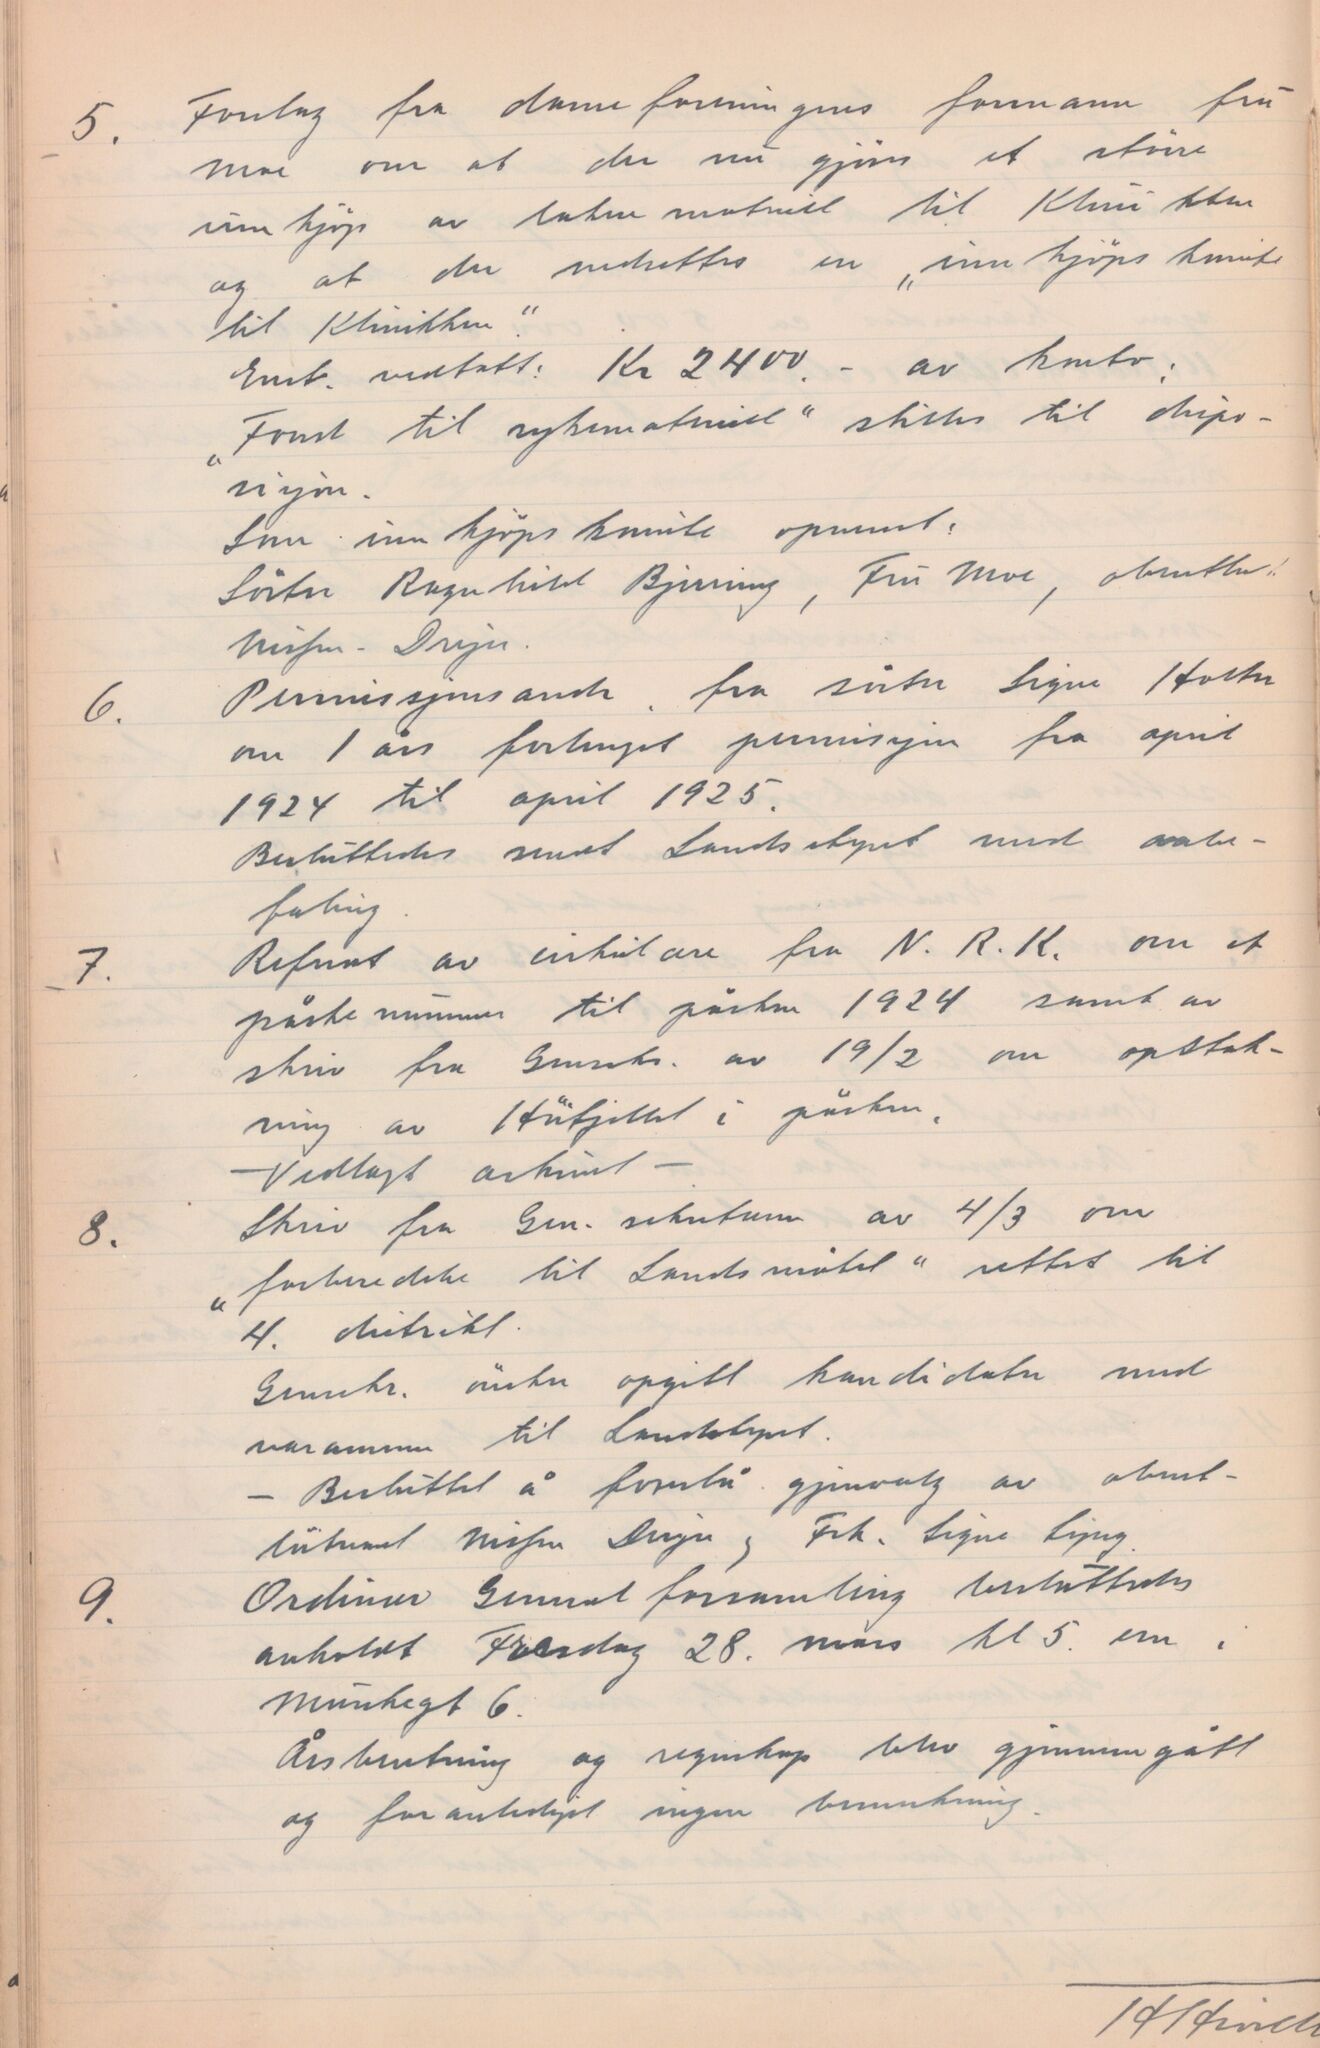 5. Forslag fra dameforeningens formann frü
Moe om at der nü gjöres et större
innkjöp av lakenmateriell til Klinikken
og at der nedsettes en „innkjöps komite
til Klinikken".
Enst. vedtatt: Kr 2400.- av konto:
„Fond til sykemateriell" stilles til dispo-
sisjon.
Som innkjöpskomite opnevnt:
Söster Ragnhild Bjerring, Frü Moe, oberstlt.
Nissen-Drejer.
6. Permissjonsansök. fra söster Signe Holter
om 1 års forlenget permisjon fra april
1924 til april 1925.
Besluttedes sendt Landsstyret med anbe-
faling.
7. Referat av cirkülære fra N. R. K. om et
påskenummer til påsken 1924 samt av
skriv fra Gensekr. av 19/2 om opstak-
ning av Höifjellet i påsken.
- Vedlagt arkivet -
8. Skriv fra Gen. sekretæren av 4/3 om
„forberedelse til Landsmötet" rettet til
4. distrikt.
Gensekr. önsker opgitt kandidater med
varamenn til Landsstyret.
- Besluttet å foreslå gjenvalg av oberst-
löitnant Nissen Drejer og Frk. Signe
9. Ordinær Generalforsamling besluttedes
avholdt Fredag 28. mars kl 5. em i
Munkegt 6.
Årsberetning og regnskap blev gjennemgått
og foranlediget ingen bemerkning.